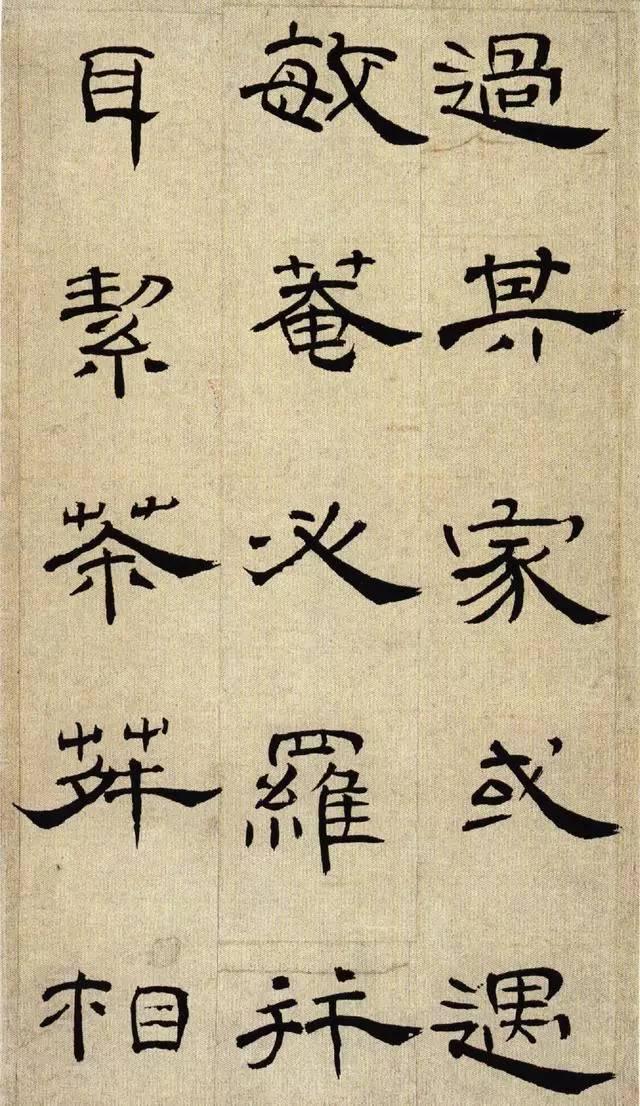 過其家或遇
敏菴必羅并
耳絜茶荈相